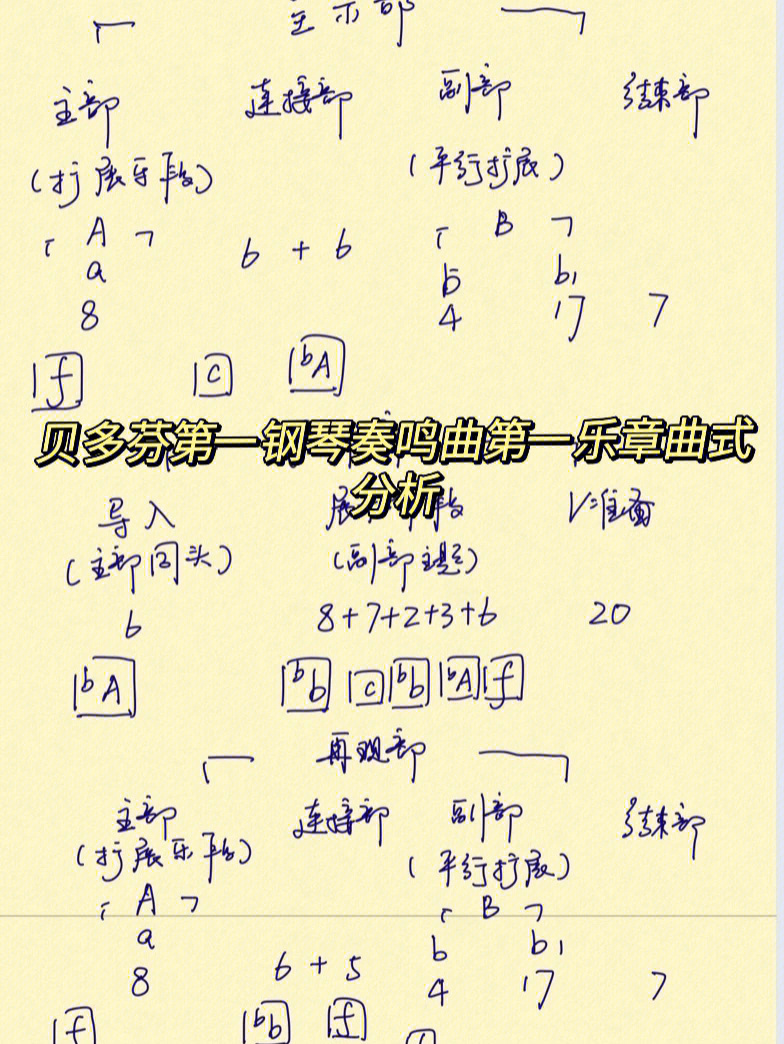 呈示部
主部 连接部 副部 结束部
(扩展乐段) (平行扩展)
A B
a 6 + 6 b b1
8 4 17 7
f c bA
贝多芬第一钢琴奏鸣曲第一乐章曲式
分析
导入 V准备
(主部回头) (副部主题)
6 8+7+2+3+6 20
bA bb c bb bA f
再现部
主部 连接部 副部 结束部
(扩展乐段) (平行扩展)
A B
a b b1
8 6 + 5 4 17 7
f bb f